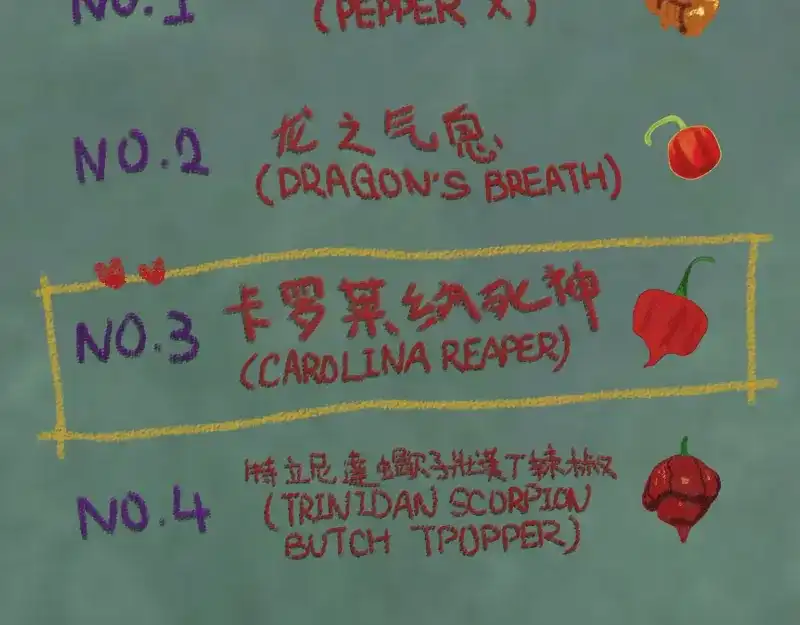 NO.1
(PEPPER X)
NO.2
龙之气息
(DRAGON'S BREATH)
NO.3
卡罗莱纳死神
(CAROLINA REAPER)
NO.4
特立尼达蝎子壮汉T辣椒
(TRINIDAN SCORPION
BUTCH TPOPPER)